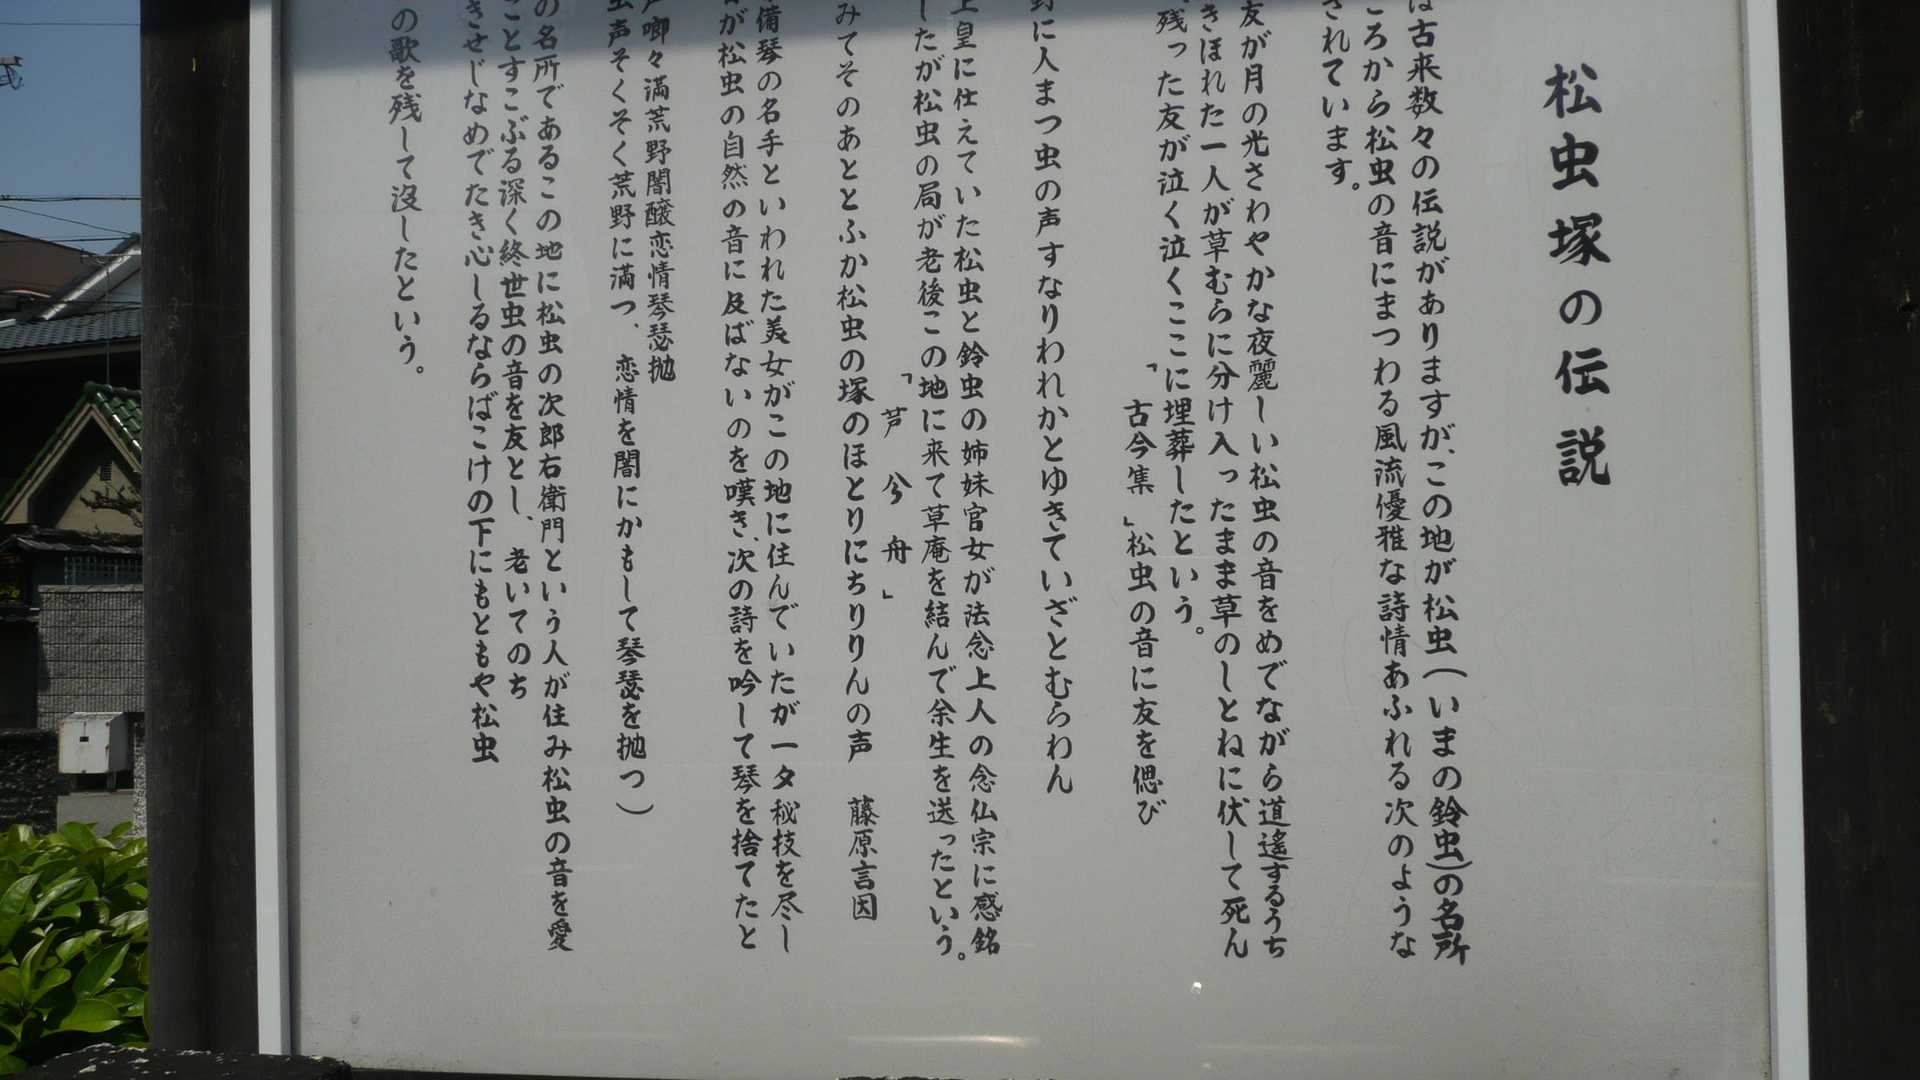 松虫塚の伝説
は古来数々の伝説がありますが、この地が松虫(いまの鈴虫)の名所
ころから松虫の音にまつわる風流優雅な詩情あふれる次のような
されています。
友が月の光さわやかな夜麗しい松虫の音をめでながら逍遙するうち
きほれた一人が草むらに分け入ったまま草のしとねに伏して死ん
残った友が泣く泣くここに埋葬したという。
「古今集」松虫の音に友を偲び
野に人まつ虫の声すなりわれかとゆきていざとむらわん
上皇に仕えていた松虫と鈴虫の姉妹官女が法念上人の念仏宗に感銘
したが松虫の局が老後この地に来て草庵を結んで余生を送ったという。
「芦兮舟」
みてそのあととふか松虫の塚のほとりにちりりんの声 藤原言因
備琴の名手といわれた美女がこの地に住んでいたが一夕秘技を尽し
が松虫の自然の音に及ばないのを嘆き、次の詩を吟して琴を捨てたと
声喞々満荒野闇醸恋情琴瑟抛
虫声そくそく荒野に満つ、恋情を闇にかもして琴瑟を抛つ)
の名所であるこの地に松虫の次郎右衛門という人が住み松虫の音を愛
ことすこぶる深く終世虫の音を友とし、老いてのち
きせじなめでたき心しるならばこけの下にもともや松虫
の歌を残して没したという。